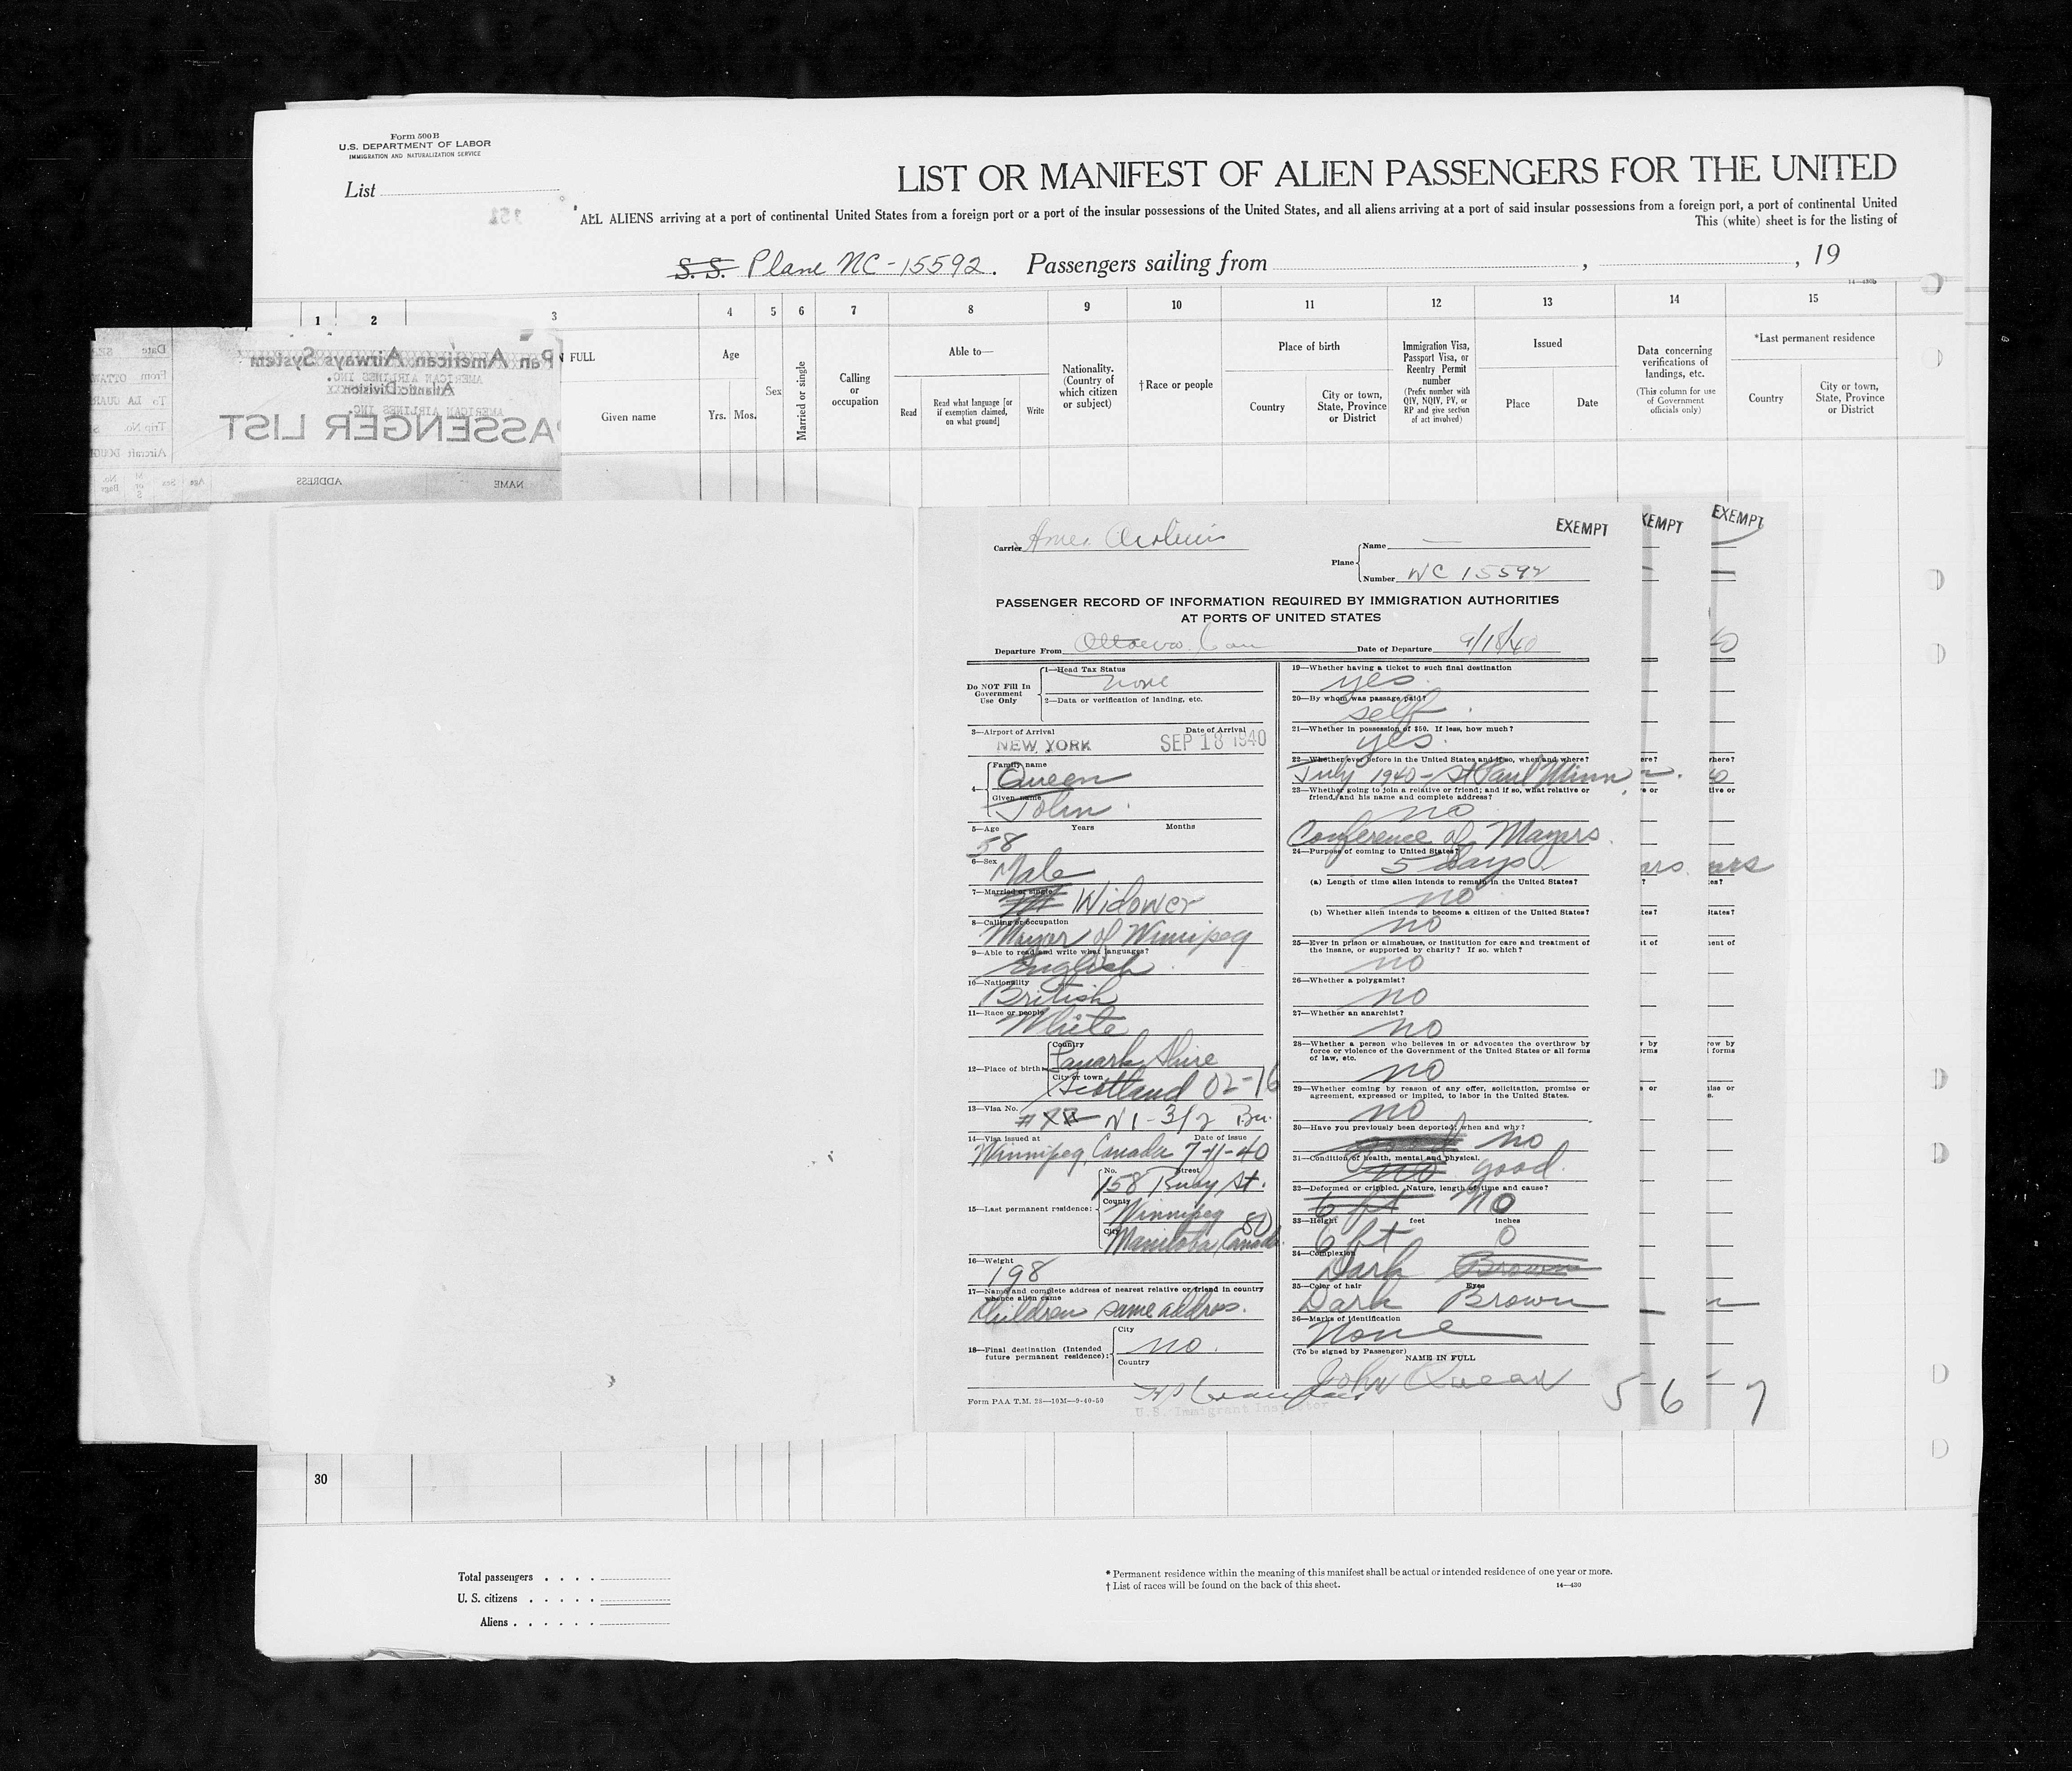 Form 500 B
U.S. DEPARTMENT OF LABOR
IMMIGRATION AND NATURALIZATION SERVICE
List
151
LIST OR MANIFEST OF ALIEN PASSENGERS FOR THE UNITED
ALL ALIENS arriving at a port of continental United States from a foreign port or a port of the insular possessions of the United States, and all aliens arriving at a port of said insular possessions from a foreign port, a port of continental United
This (white) sheet is for the listing of
S.S. Plane NC-15592. Passengers sailing from , , 19
14—430b
1 2 3 4 5 6 7 8 9 10 11 12 13 14 15
N FULL
Given name
Age
Yrs. Mos.
Sex
Married or single
Calling or occupation
Able to—
Read
Read what language [or if exemption claimed, on what ground]
Write
Nationality. (Country of which citizen or subject)
†Race or people
Place of birth
Country
City or town, State, Province or District
Immigration Visa, Passport Visa, or Reentry Permit number
(Prefix number with QIV, NQIV, PV, or RP and give section of act involved)
Issued
Place
Date
Data concerning verifications of landings, etc.
(This column for use of Government officials only)
*Last permanent residence
Country
City or town, State, Province or District
Pan American Airways System
AMERICAN AIRLINES INC.
Atlantic Division
AMERICAN AIRLINES INC.
PASSENGER LIST
Date
From OTTAWA
To LA GUAR
Trip No.
Aircraft DOUG
NAME
ADDRESS
Age
Sex
M or S
No. Bags
EXEMPT
XEMPT
EXEMPT
Carrier Amer. Airlines
Plane
Name —
Number NC 15592
PASSENGER RECORD OF INFORMATION REQUIRED BY IMMIGRATION AUTHORITIES
AT PORTS OF UNITED STATES
Departure From Ottawa Can Date of Departure 9/18/40
Do NOT Fill In Government Use Only
1—Head Tax Status
none
2—Data or verification of landing, etc.
3—Airport of Arrival Date of Arrival
NEW YORK SEP 18 1940
4—
Family name
Queen
Given name
John
5—Age Years Months
58
6—Sex
Male
7—Married or single
Widower
8—Calling or occupation
Mayor of Winnipeg
9—Able to read and write what languages?
English
10—Nationality
British
11—Race or people
White
12—Place of birth
Country
Lanark Shire
City or town
Scotland 02-16
13—Visa No.
N1-312
14—Visa issued at Date of issue
Winnipeg, Canada 7-11-40
15—Last permanent residence:
No. Street
158 Ruby St.
County
Winnipeg
City
Manitoba, Canada
16—Weight
198
17—Name and complete address of nearest relative or friend in country whence alien came
Children same address.
18—Final destination (Intended future permanent residence):
City
no.
Country
Form PAA T.M. 28—10M—9-40-50
U.S. Immigrant Inspector
19—Whether having a ticket to such final destination
yes
20—By whom was passage paid?
self.
21—Whether in possession of $50. If less, how much?
yes.
22—Whether ever before in the United States and if so, when and where?
July 1940 - St Paul Minn
23—Whether going to join a relative or friend; and if so, what relative or friend, and his name and complete address?
no
Conference of Mayors.
24—Purpose of coming to United States?
5 days
(a) Length of time alien intends to remain in the United States?
no
(b) Whether alien intends to become a citizen of the United States?
no
25—Ever in prison or almshouse, or institution for care and treatment of the insane, or supported by charity? If so, which?
no
26—Whether a polygamist?
no
27—Whether an anarchist?
no
28—Whether a person who believes in or advocates the overthrow by force or violence of the Government of the United States or all forms of law, etc.
no
29—Whether coming by reason of any offer, solicitation, promise or agreement, expressed or implied, to labor in the United States.
no
30—Have you previously been deported; when and why?
good no
31—Condition of health, mental and physical.
no good.
32—Deformed or crippled. Nature, length of time and cause?
6 ft NO
33—Height feet inches
6 ft 0
34—Complexion
Dark Brown
35—Color of hair Eyes
Dark Brown
36—Marks of Identification
None
(To be signed by Passenger)
NAME IN FULL
John Queen
5 6 7
30
Total passengers
U. S. citizens
Aliens
* Permanent residence within the meaning of this manifest shall be actual or intended residence of one year or more.
† List of races will be found on the back of this sheet.
14—430